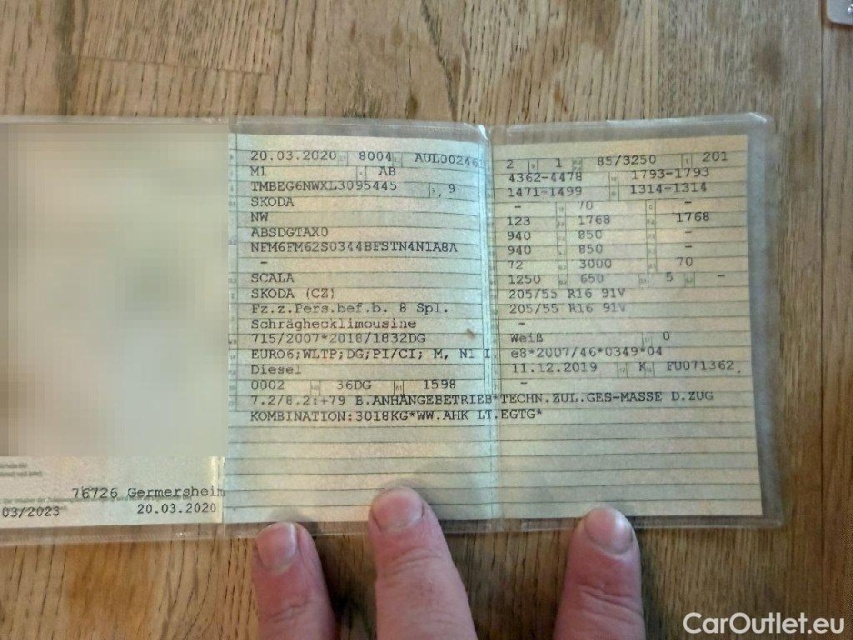 76726 Germersheim
03/2023 20.03.2020
20.03.2020 8004 AUL00246
M1 AB
TMBEG6NWXL3095445 9
SKODA
NW
ABSDGTAX0
NFM6FM62S0344BFSTN4N1A8A
-
SCALA
SKODA (CZ)
Fz.z.Pers.bef.b. 8 Spl.
Schräghecklimousine
715/2007*2018/1832DG
EURO6;WLTP;DG;PI/CI; M, N1 I
Diesel
0002 36DG 1598
2 1 85/3250 201
4362-4478 1793-1793
1471-1499 1314-1314
- 70 -
123 1768 1768
940 850 -
940 850 -
72 3000 70
1250 650 5 -
205/55 R16 91V
205/55 R16 91V
-
Weiß 0
e8*2007/46*0349*04
11.12.2019 K FU071362
-
7.2/8.2:+79 B.ANHÄNGEBETRIEB*TECHN.ZUL.GES-MASSE D.ZUG
KOMBINATION:3018KG*WW.AHK LT.EGTG*
CarOutlet.eu